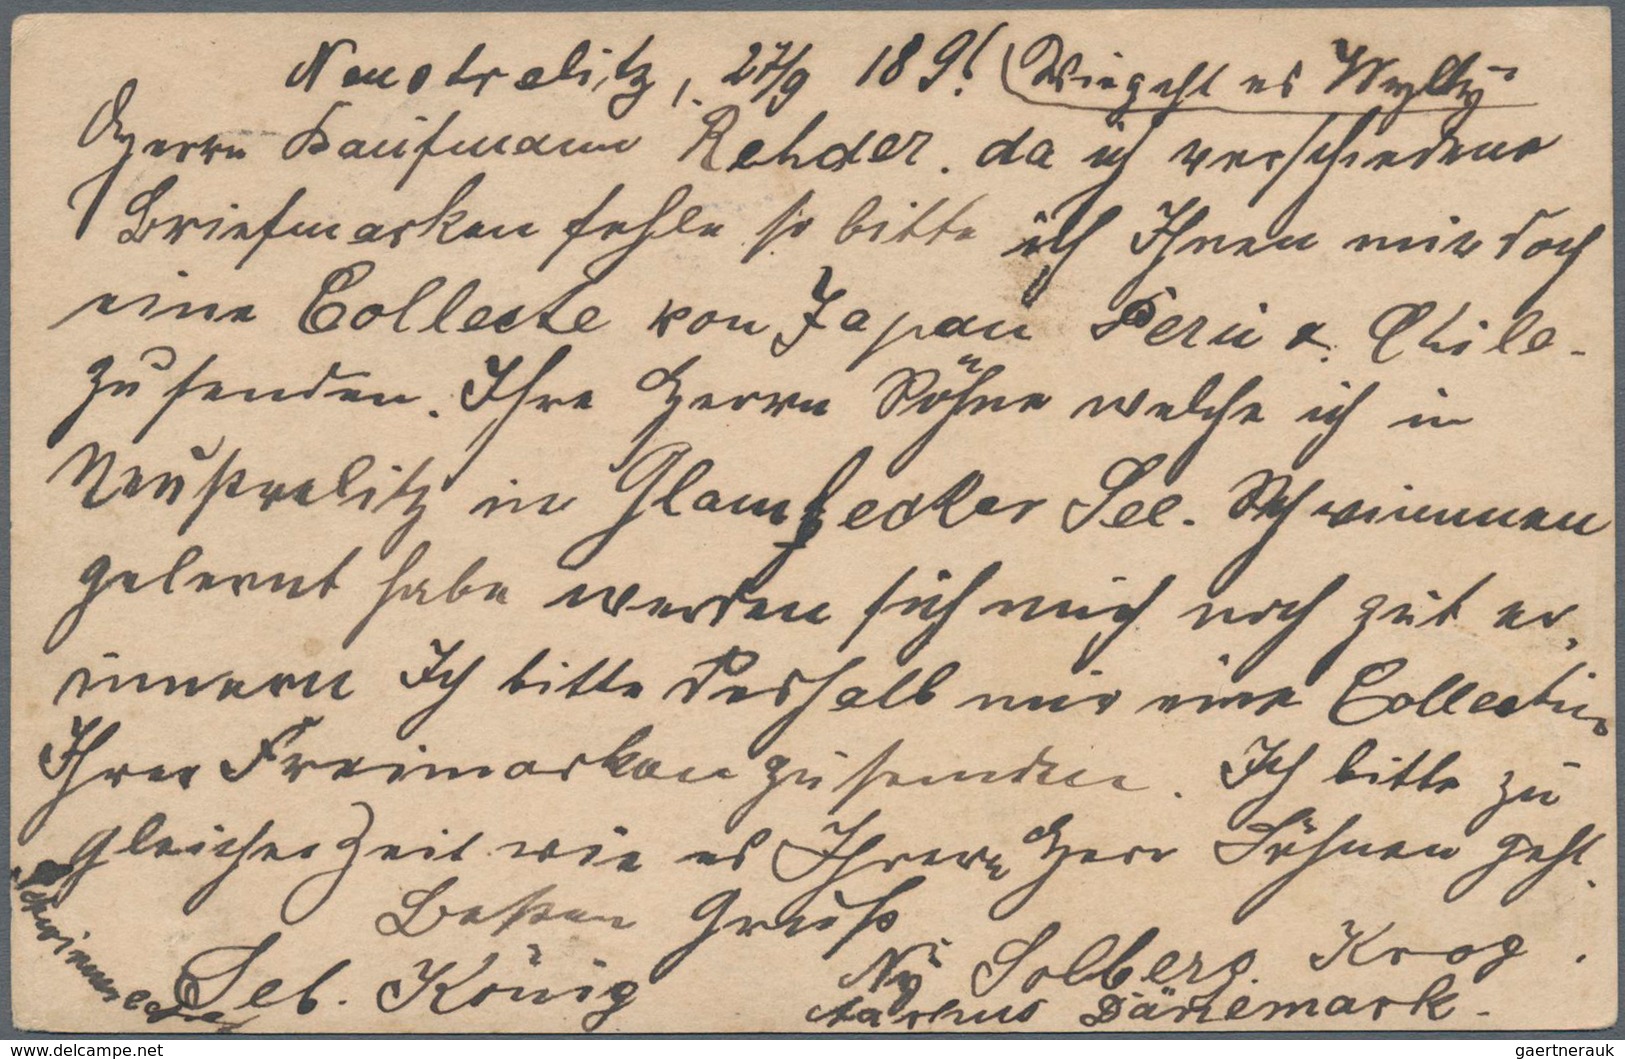 Neustrelitz, 27/9 189! Wie geht es
Herrn Kaufmann Rehder. da ich verschiedene
Briefmarken fehle so bitte ich Ihnen mir doch
eine Collecte von Japan Peru & Chile-
zu senden. Ihre Herrn Söhne welche ich in
Neustrelitz in Glambecker See. Schwimmen
gelernt habe werden sich mich noch gut er-
innern Ich bitte deshalb mir eine Collection
Ihrer Freimarken zu senden. Ich bitte zu
gleicher Zeit wie es Ihrern Herr Söhnen geht.
Besten Gruß
Seb. König
Ny Solberg Krog.
Aarhus Dänemark.
Schwimmlehrer
delcampe.net
gaertnerauk